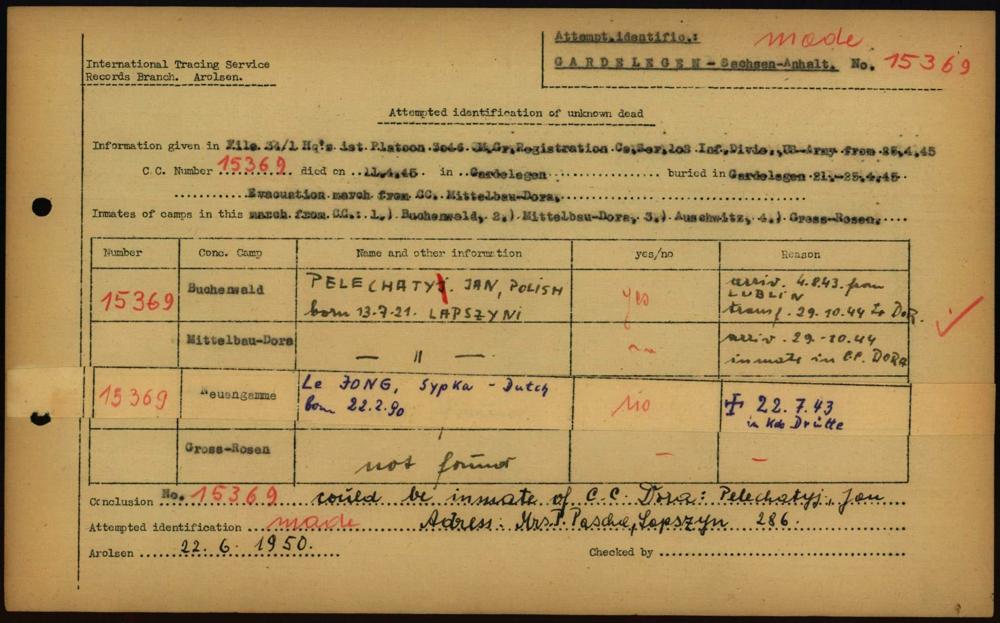 International Tracing Service
Records Branch. Arolsen.
Attempt.identific.: made
GARDELEGEN - Sachsen-Anhalt. No. 15369
Attempted identification of unknown dead
Information given in File 34/1 Hq's 1st Platoon 3046 QM.Gr.Registration Co,Ser,102 Inf,Divis., US-Army from 25,4,45
C.C. Number 15369 died on 11.4.45 in Gardelegen buried in Gardelegen 21.-25.4.45
Evacuation march from CC. Mittelbau-Dora,
Inmates of camps in this march from C.C.: 1.) Buchenwald, 2.) Mittelbau-Dora, 3.) Auschwitz, 4.) Gross-Rosen.
Number Conc. Camp Name and other information yes/no Reason
15369 Buchenwald PELECHATYJ. JAN, POLISH born 13.7.21. LAPSZYNI yes arriv. 4.8.43. from LUBLIN transf. 29.10.44 to DOR.
Mittelbau-Dora — " — arriv. 29.-10.44 inmate in CC. DORA
15369 Neuengamme Le JONG, Sypka - Dutch born 22.2.90 no ✝ 22.7.43 in Kdo Drütte
Gross-Rosen not found — —
Conclusion No. 15369 could be inmate of C.C. Dora: Pelechatyj, Jan
Attempted identification made Adress: Mrs P. Pascha, Lopszyn 286.
Arolsen 22. 6. 1950. Checked by